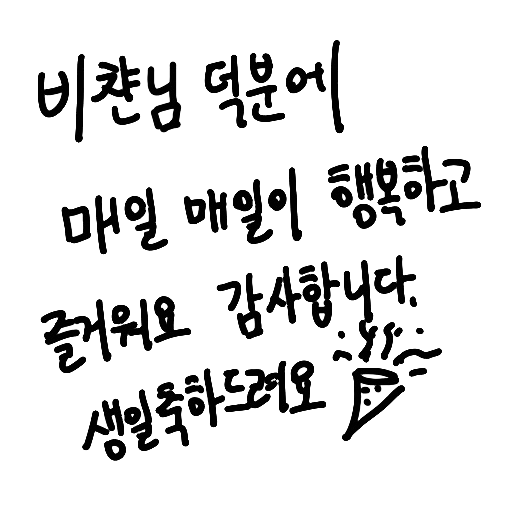 비챤님 덕분에
매일 매일이 행복하고
즐거워요 감사합니다.
생일축하드려요